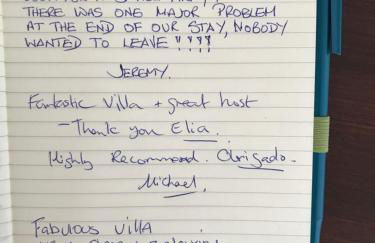 THERE WAS ONE MAJOR PROBLEM
AT THE END OF OUR STAY, NOBODY
WANTED TO LEAVE !!!!
JEREMY.
Fantastic Villa + great host
- Thank you Elia.
Highly Recommend. Obrigado.
Michael
FABULOUS VILLA